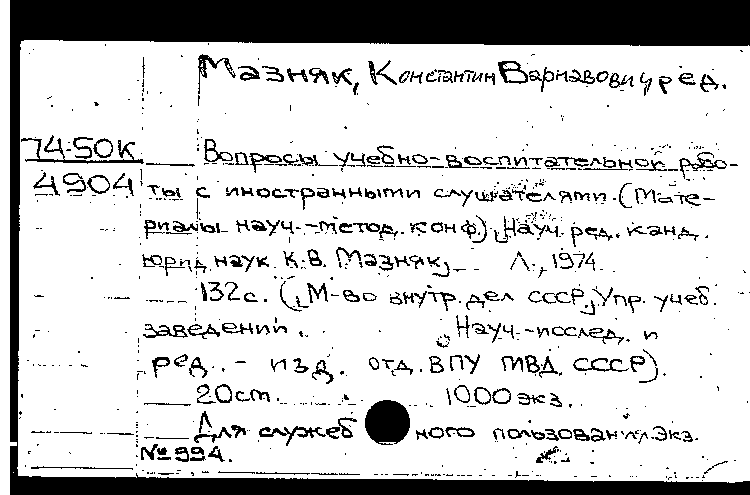 Мазняк, Константин Варнавович, ред.
74-50К
4904
Вопросы учебно-воспитательной рабо-
ты с иностранными слушателями. (Мате-
риалы науч.-метод. конф), Науч. ред. канд.
юрид. наук К.В. Мазняк, Л., 1974.
132с. (М-во внутр. дел СССР, Упр. учеб.
заведений. Науч.-исслед. и
ред. - изд. отд. ВПУ МВД СССР).
20ст. 1000 экз.
Для служебного пользования. Экз.
№ 994.